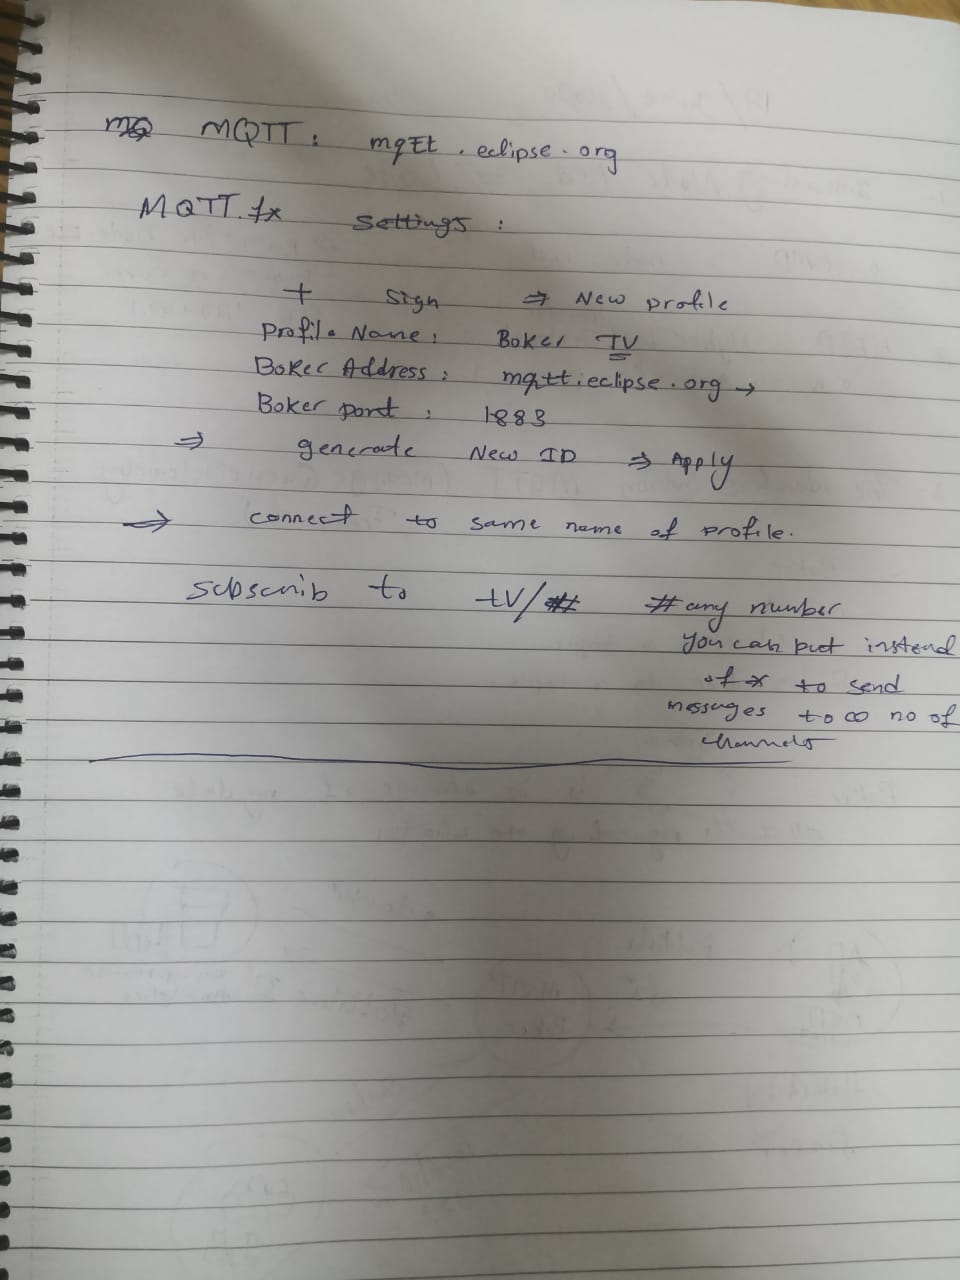 MQTT: mqtt.eclipse.org
MQTT.fx settings:
+ sign ⇒ New profile
Profile Name: Boker TV
Boker Address: mqtt.eclipse.org →
Boker port: 1883
⇒ generate New ID ⇒ Apply
⇒ connect to same name of profile.
subscrib to tV/# # any number
you can put instead
of x to send
messages to ∞ no of
channels